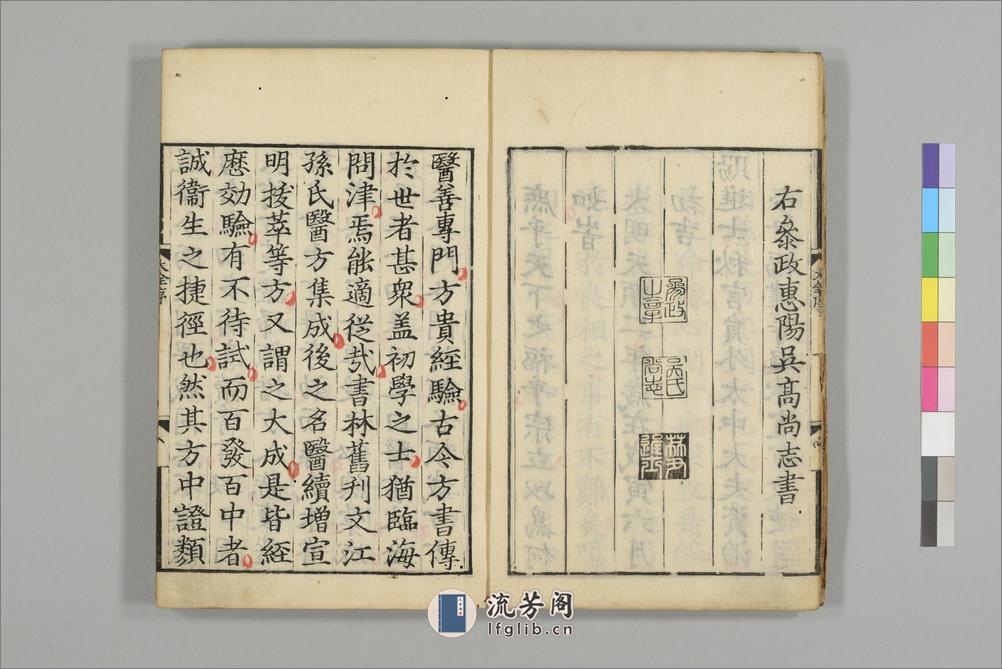 右叅政惠陽吳髙尚志書
醫善專門方貴經驗古今方書傳
於世者甚衆盖初學之士猶臨海
問津焉能適從㢤書林舊刊文江
孫氏醫方集成後之名醫續增宣
明拔萃等方又謂之大成是皆經
應効驗有不待試而百發百中者
誠衞生之捷徑也然其方中證類
大全序
流芳阁
lfglib.cn